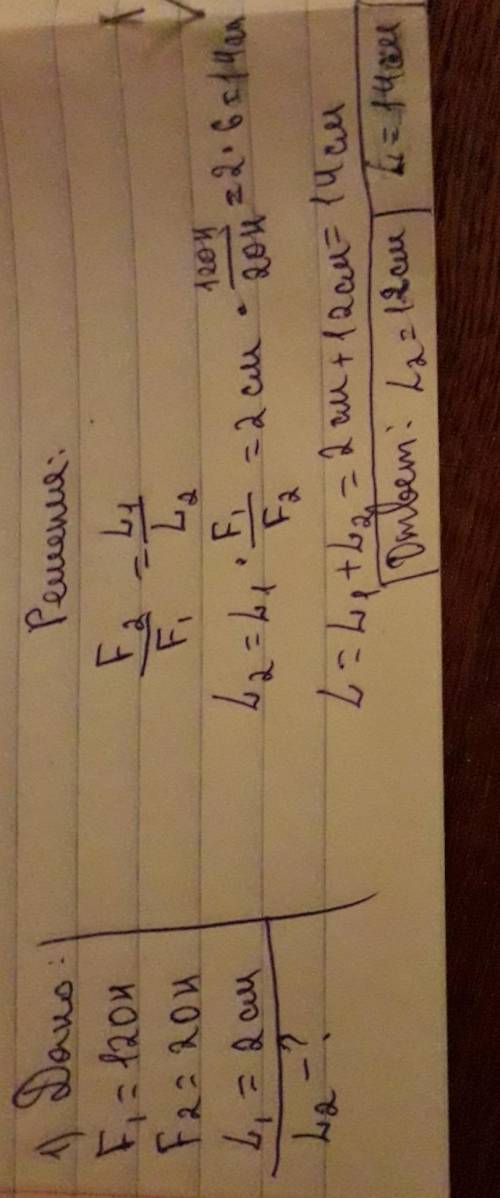 1) Дано:
F₁ = 120Н
F₂ = 20Н
L₁ = 2см
L₂ - ?
Решения:
F₂/F₁ = L₁/L₂
L₂ = L₁ · F₁/F₂ = 2 см · 120Н/20Н = 2·6 = 14см
L = L₁ + L₂ = 2 см + 12см = 14см
Ответ: L₂ = 12см L = 14см